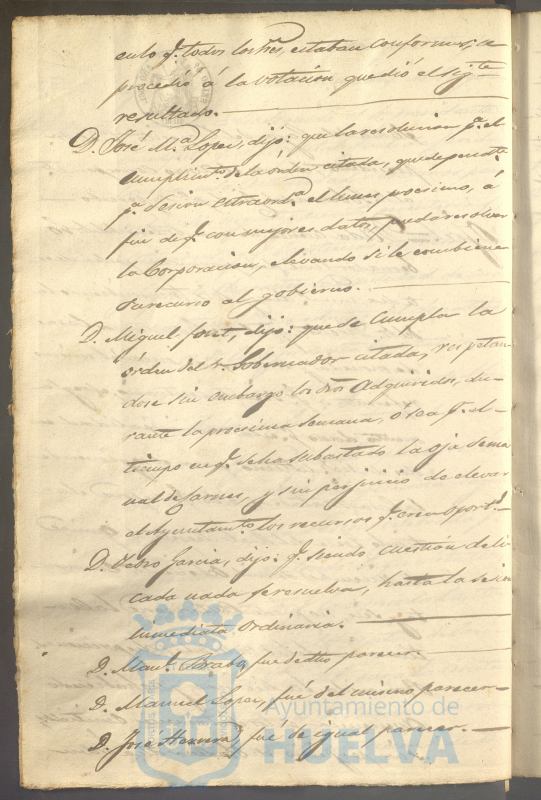 culo q.e todos los S.res estaban conformes, se
procedió á la votacion que dió el sig.te
resultado.
D. José M.a Lopez, dijo: que la resolucion p.a el
cumplim.to de la órden citada, quede pend.te
p.a sesion estraord.a el lunes procsimo, á
fin de q.e con mejores datos, pueda resolver
la Corporacion, elevando si le combiene
su recurso al gobierno.
D. Miguel Font, dijo: que se cumpla la
órden del S.r Gobernador citada, respetan
dose sin embargo los dros adquiridos, du-
rante la procsima semana, ó sea p.r el
tiempo en q.e se ha subastado la oja sema
nal de carnes, y sin perjuicio de elevar
el Ayuntam.to los recursos q.e crea oport.s
D. Pedro Garcia, dijo: q.e siendo cuestion deli
cada nada se resuelva, hasta la sesion
inmediata ordinaria.
D. Man.l fue de dho parecer
D. Manuel Lopez, fué del mismo parecer
D. José Herrera, fué de igual parecer.
Ayuntamiento de
HUELVA